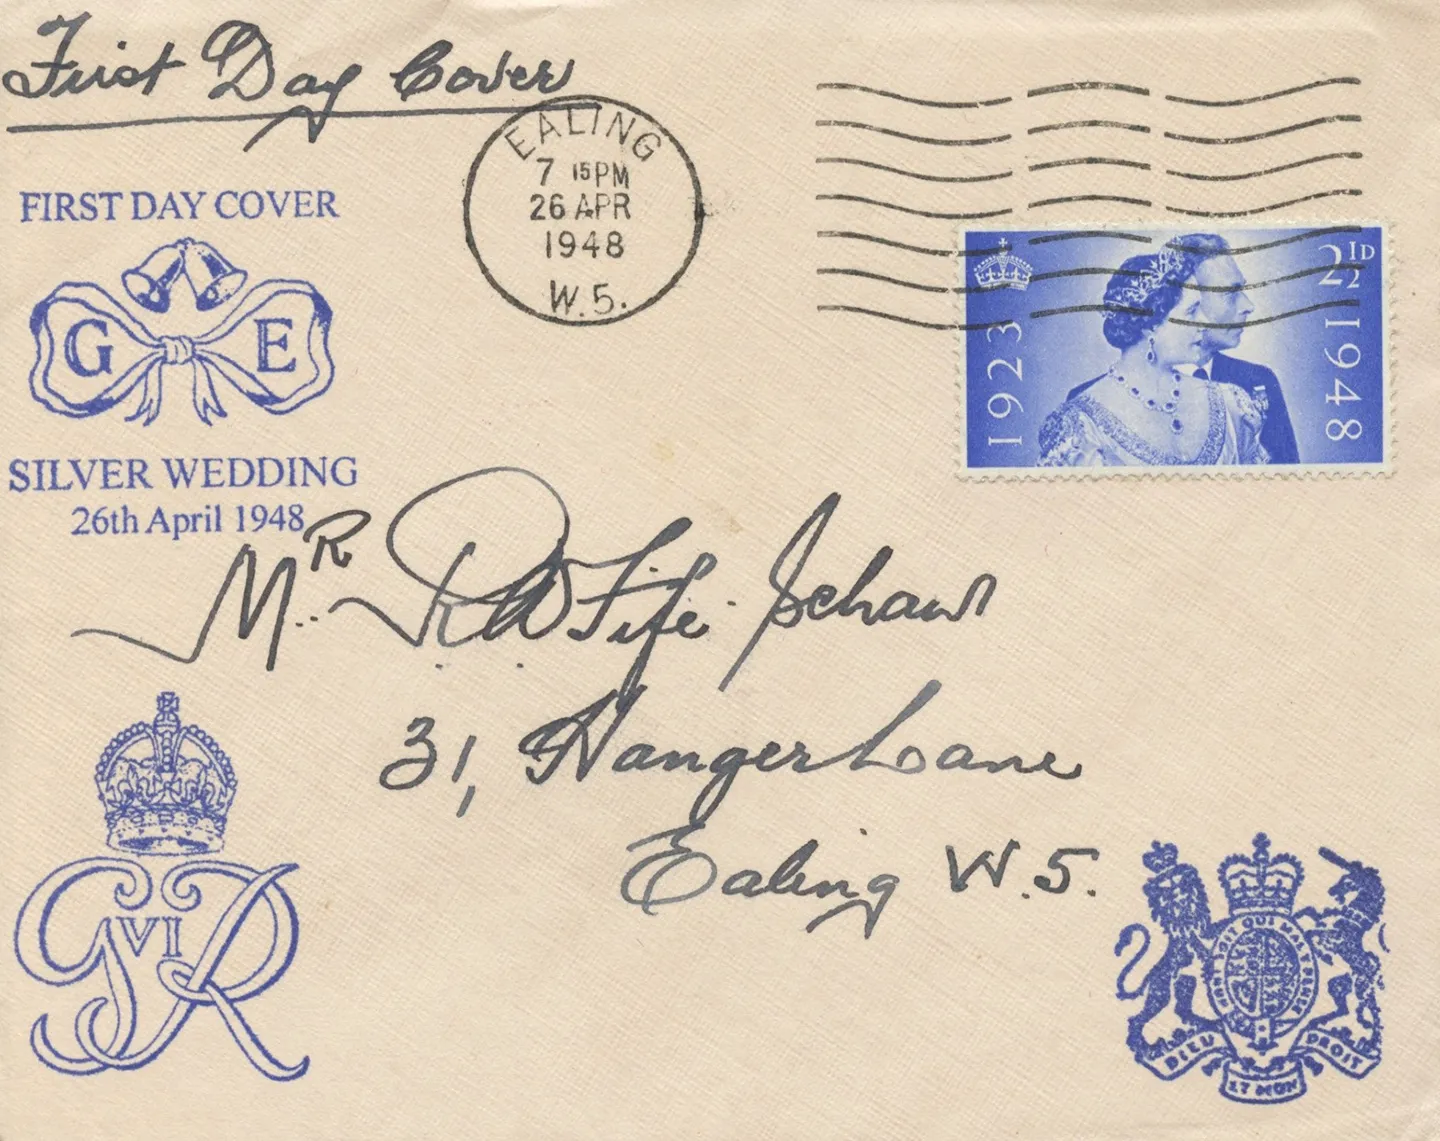 First Day Cover
FIRST DAY COVER
G E
SILVER WEDDING
26th April 1948
EALING
7 15PM
26 APR
1948
W.5.
2½D
1923
1948
Mr. Fife Schaw
31, Hanger Lane
Ealing W.5.
G VI R
HONI SOIT QUI MAL Y PENSE
DIEU ET MON DROIT